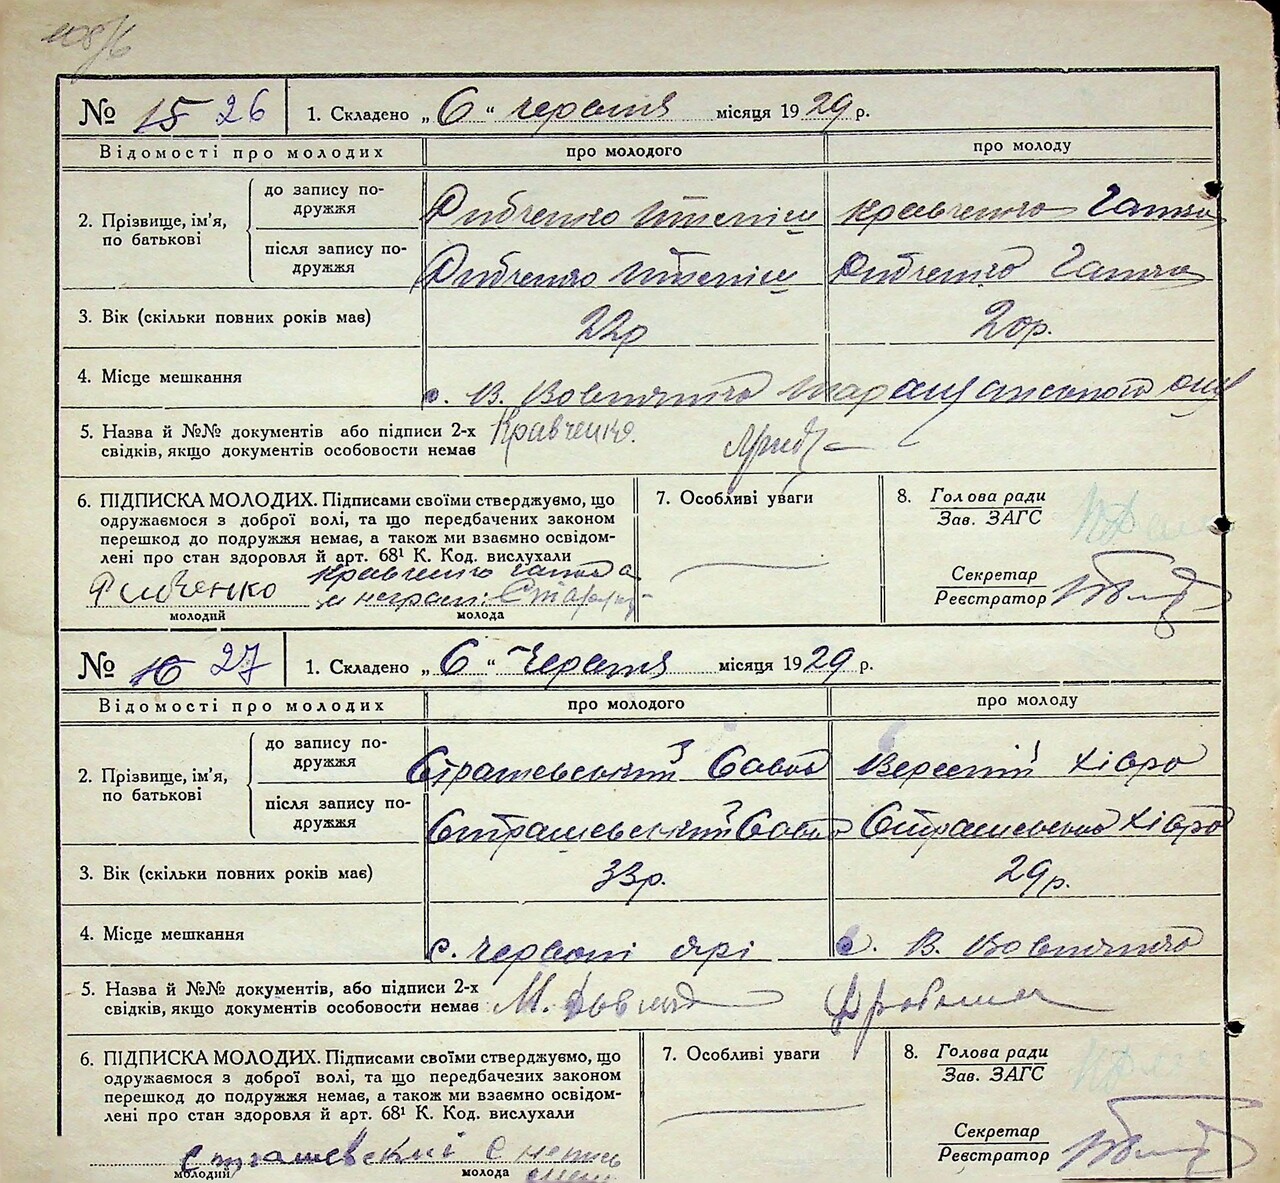 № 15 26 1. Складено „6“ червня місяця 1929 р.
Відомості про молодих про молодого про молоду
2. Прізвище, ім'я, по батькові
до запису подружжя Рибченко Кравченко Ганна
після запису подружжя Рибченко Рибченко Ганна
3. Вік (скільки повних років має) 22р 20р.
4. Місце мешкання с. В. Вовнянка
5. Назва й №№ документів або підписи 2-х Кравченко.
свідків, якщо документів особовости немає
6. ПІДПИСКА МОЛОДИХ. Підписами своїми стверджуємо, що
одружаємося з доброї волі, та що передбачених законом
перешкод до подружжя немає, а також ми взаємно освідом-
лені про стан здоров'я й арт. 68¹ К. Код. вислухали
Кравченко Ганна
Рибченко
молодий молода
7. Особливі уваги
8. Голова ради
Зав. ЗАГС
Секретар
Реєстратор
№ 16 27 1. Складено „6“ Червня місяця 1929 р.
Відомості про молодих про молодого про молоду
2. Прізвище, ім'я, по батькові
до запису подружжя Страшевський Сава Хівря
після запису подружжя Страшевський Сава Страшевська Хівря
3. Вік (скільки повних років має) 33р. 29р.
4. Місце мешкання с. Червоні ярі с. В. Вовнянка
5. Назва й №№ документів, або підписи 2-х М.
свідків, якщо документів особовости немає
6. ПІДПИСКА МОЛОДИХ. Підписами своїми стверджуємо, що
одружаємося з доброї волі, та що передбачених законом
перешкод до подружжя немає, а також ми взаємно освідом-
лені про стан здоров'я й арт. 68¹ К. Код. вислухали
Страшевский
молодий молода
7. Особливі уваги
8. Голова ради
Зав. ЗАГС
Секретар
Реєстратор